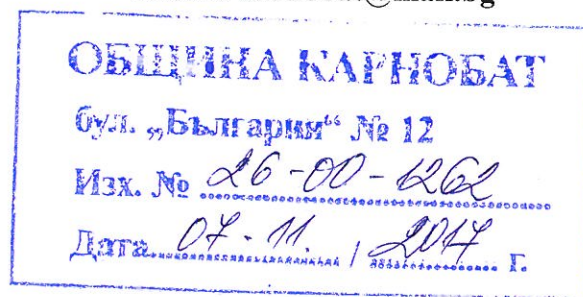 ОБЩИНА КАРНОБАТ
бул. „България“ № 12
Изх. № 26-00-1262
Дата 07-11. / 2017 г.